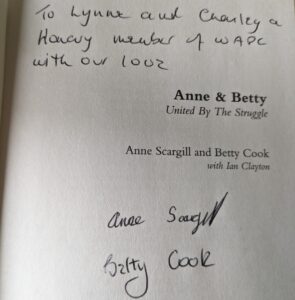 To Lynne and Charley a
Honary member of WAPC
with our love
Anne & Betty
United By The Struggle
Anne Scargill and Betty Cook
with Ian Clayton
Anne Scargill
Betty Cook